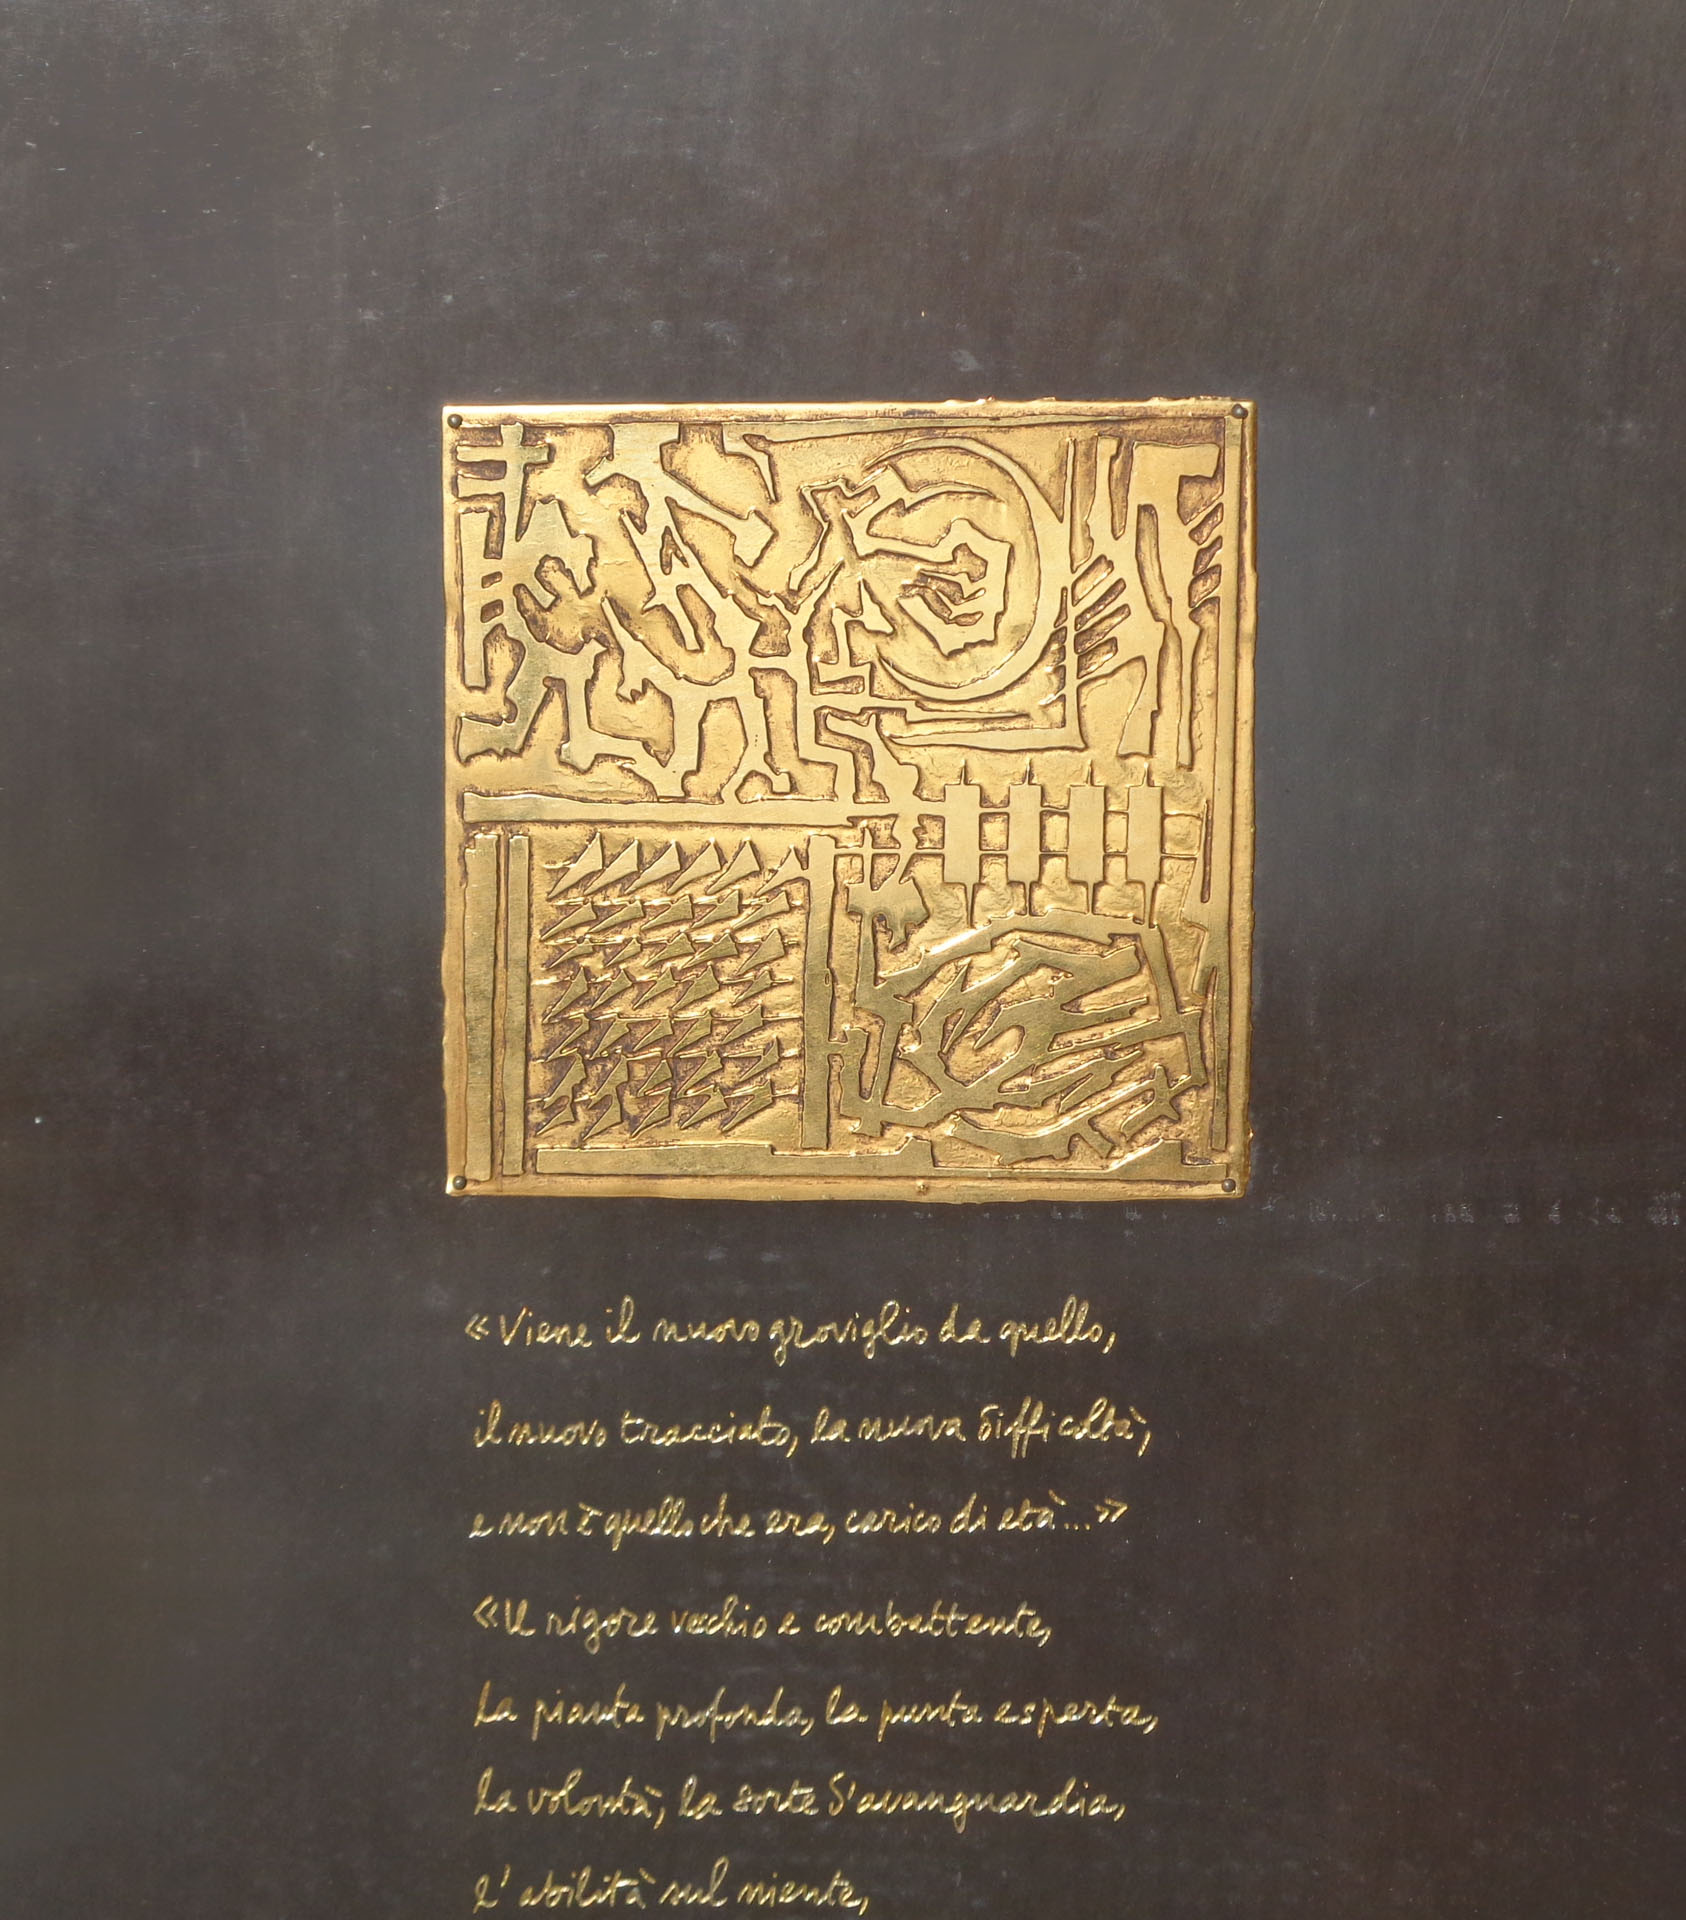 «Viene il nuovo groviglio da quello,
il nuovo tracciato, la nuova difficoltà,
e non è quello che era, carico di età...»
«Il rigore vecchio e combattente,
la pianta profonda, la punta esperta,
la volontà, la sorte d'avanguardia,
l'abilità sul niente,